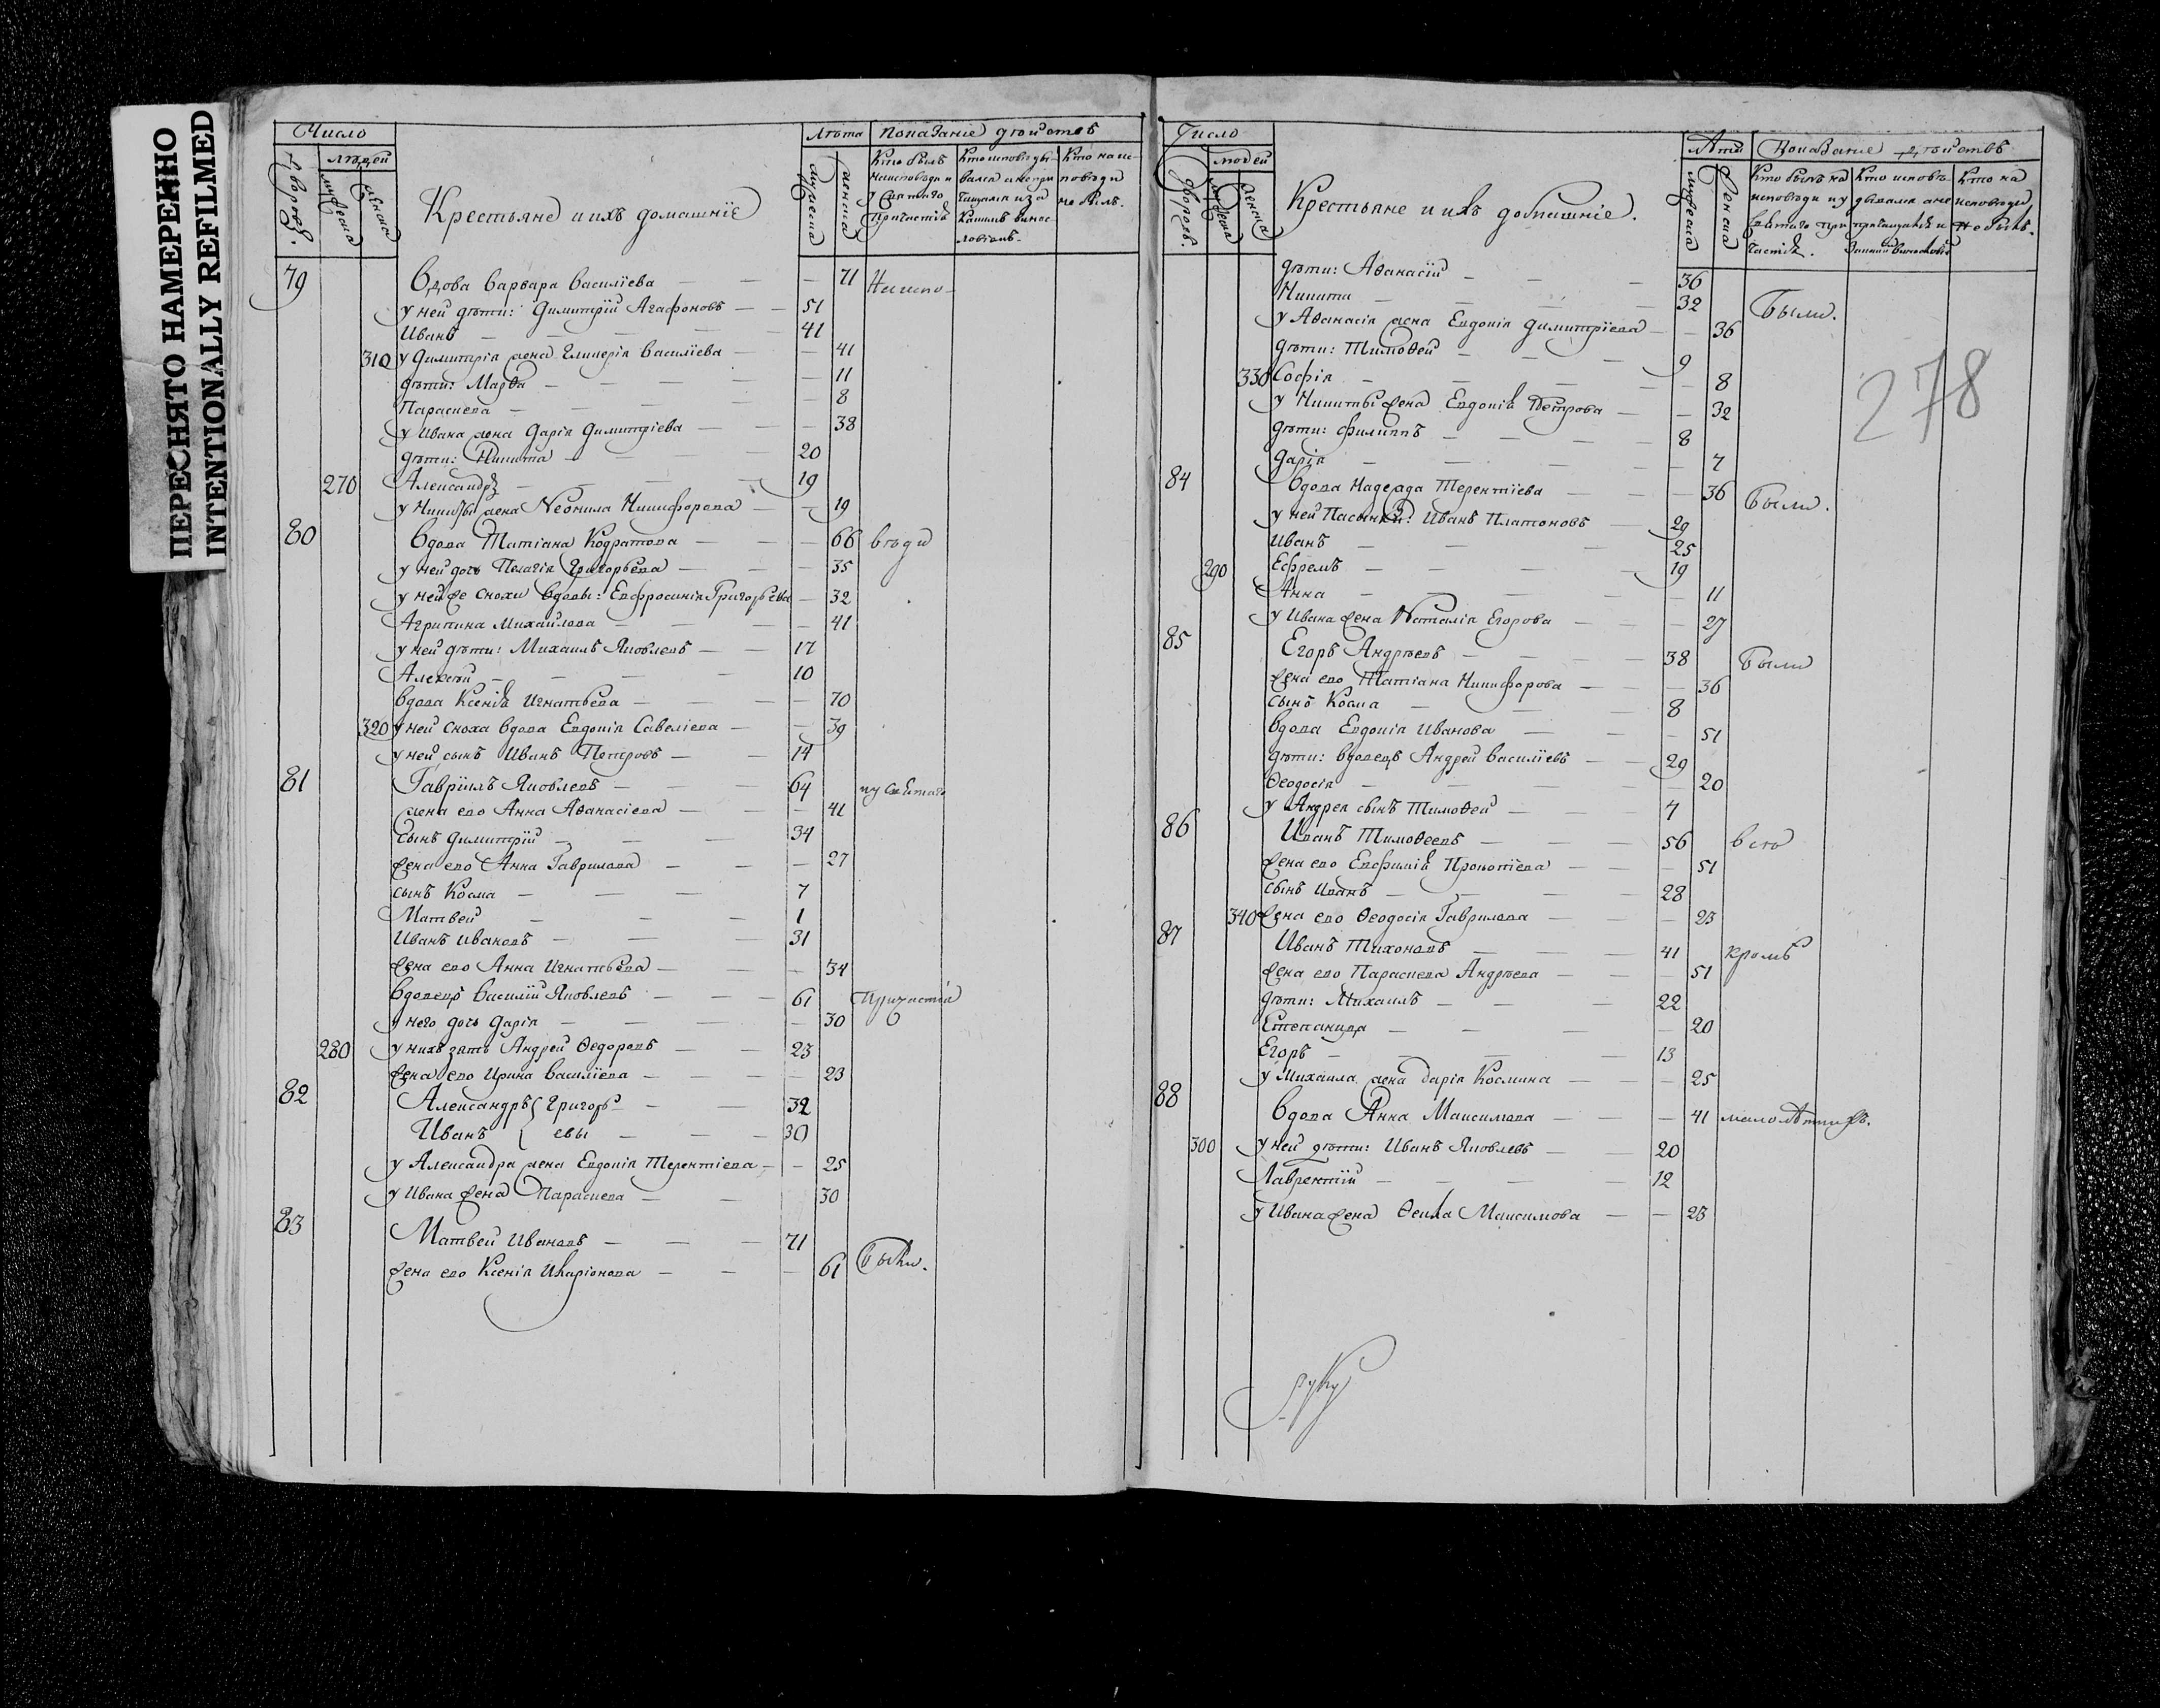 ПЕРЕСНЯТО НАМЕРЕННО
INTENTIONALLY REFILMED
Число Лѣта Показаніе дѣйствъ
дворовъ. людей мужеска женска Крестьяне и ихъ домашніе мужеска женска
Кто былъ на исповѣди и у Святаго Причастія
Кто исповѣдывался а не причащался и за какимъ винословіемъ.
Кто на исповѣди не былъ.
79 Вдова Варвара Василіева — — — 71 На испо-
у ней дѣти: Димитрій Агафоновъ — — 51
Иванъ — — 41
310 у Димитрія жена Гликерія Василіева — — 41
дѣти: Марѳа — — — 11
Параскева — — — 8
у Ивана жена Дарія Димитріева — — 38
дѣти: Никита — — 20
270 Александръ — — 19
у Никиты жена Неонила Никифорова — — 19
80 Вдова Татіана Кодратова — — — 66 вѣди
у ней дочь Пелагія Григорьева — — 35
у ней же снохи вдовы: Евфросинія Григорьева — 32
Агрипина Михайлова — — — 41
у ней дѣти: Михаилъ Яковлевъ — — 17
Алексѣй — — — 10
вдова Ксенія Игнатьева — — — 70
320 у ней сноха вдова Евдокія Савеліева — — 39
у ней сынъ Иванъ Петровъ — — 14
81 Гавріилъ Яковлевъ — — — 64 и у Святаго
жена его Анна Аѳанасіева — — — 41
сынъ Димитрій — — — 34
жена его Анна Гаврилова — — — 27
сынъ Косма — — — 7
Матвей — — — 1
Иванъ Ивановъ — — — 31
жена его Анна Игнатьева — — — 34
вдовецъ Василій Яковлевъ — — — 61 Причастія
у него дочь Дарія — — — 30
280 у нихъ зять Андрей Ѳедоровъ — — 23
жена его Ирина Василіева — — — 23
82 Александръ { Григорь- — — 32
Иванъ { евы — — — 30
у Александра жена Евдокія Терентіева — — 25
у Ивана жена Параскева — — 30
83 Матвей Ивановъ — — — 71
жена его Ксенія Иларіонова — — — 61 Были.
Число Лѣта Показаніе дѣйствъ
дворовъ. людей мужеска женска Крестьяне и ихъ домашніе. мужеска женска
Кто былъ на исповѣди и у Святаго причастія.
Кто исповѣдывался а не причащался и
Кто на исповѣди не былъ.
дѣти: Аѳанасій — — — 36
Никита — — — 32 Были.
у Аѳанасія жена Евдокія Димитріева — — 36
дѣти: Тимоѳей — — — 9
330 Софія — — — 8
278
у Никиты жена Евдокія Петрова — — 32
дѣти: Филиппъ — — — 8
Дарія — — — 7
84 вдова Надежда Терентіева — — — 36 Были.
у ней пасынки: Иванъ Платоновъ — 29
Иванъ — — — 25
290 Ефремъ — — — 19
Анна — — — 11
у Ивана жена Наталія Егорова — — — 27
85 Егоръ Андреевъ — — — 38 Были
жена его Татіана Никифорова — — — 36
сынъ Косма — — — 8
вдова Евдокія Иванова — — — 51
дѣти: вдовецъ Андрей Василіевъ — — 29
Ѳеодосія — — — 20
у Андрея сынъ Тимоѳей — — 7
86 Иванъ Тимоѳеевъ — — — 56 всѣ
жена его Евфимія Прокопіева — — — 51
сынъ Иванъ — — — 28
340 жена его Ѳеодосія Гаврилова — — — 23
87 Иванъ Тихоновъ — — — 41 кромѣ
жена его Параскева Андреева — — — 51
дѣти: Михаилъ — — — 22
Степанида — — — 20
Егоръ — — — 13
у Михаила жена Дарія Космина — — — 25
88 вдова Анна Максимова — — — 41 малолѣтныхъ.
300 у ней дѣти: Иванъ Яковлевъ — — 20
Лаврентій — — — 12
у Ивана жена Ѳекла Максимова — — 23
руку